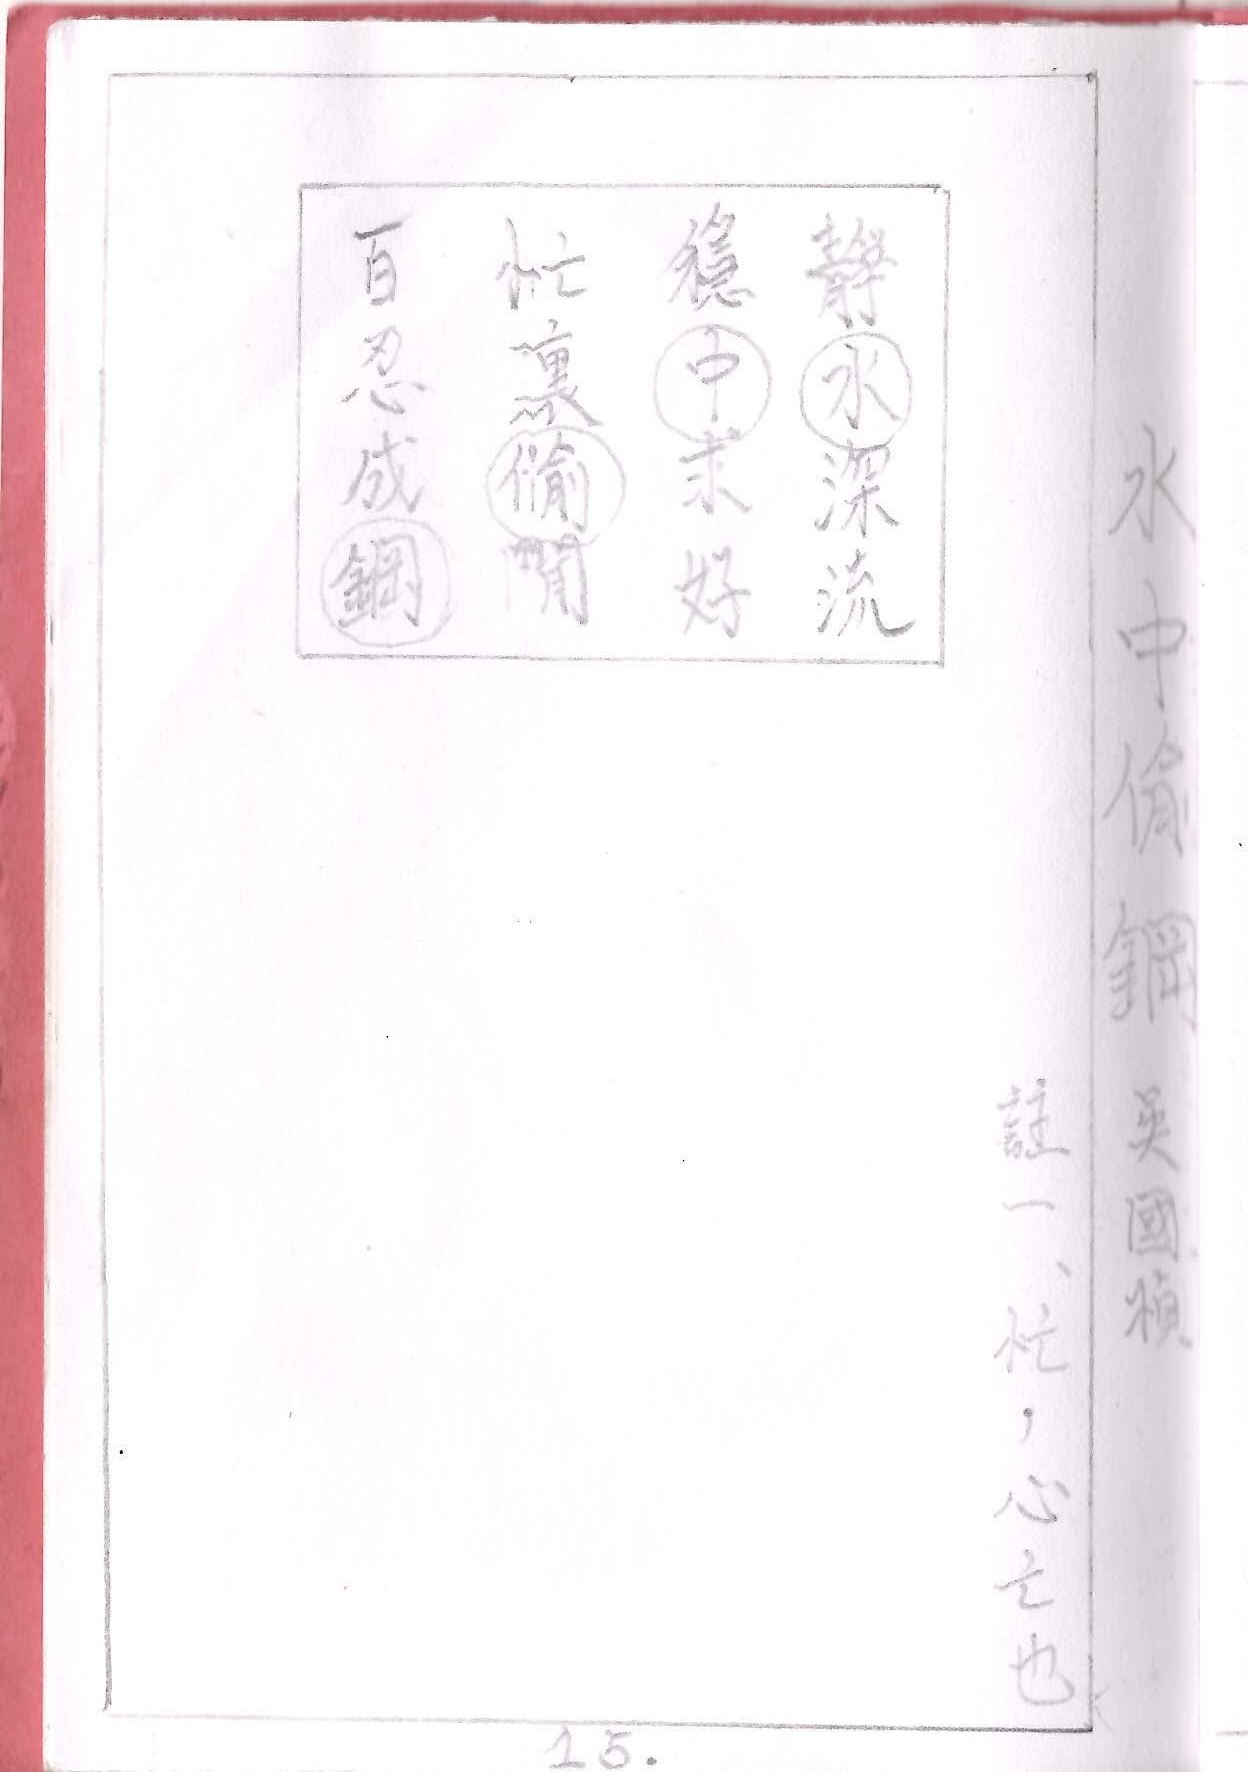 水中偷鋼 吳國楨
註一、忙，心亡也
靜水深流
穩中求好
忙裏偷閒
百忍成鋼
15.